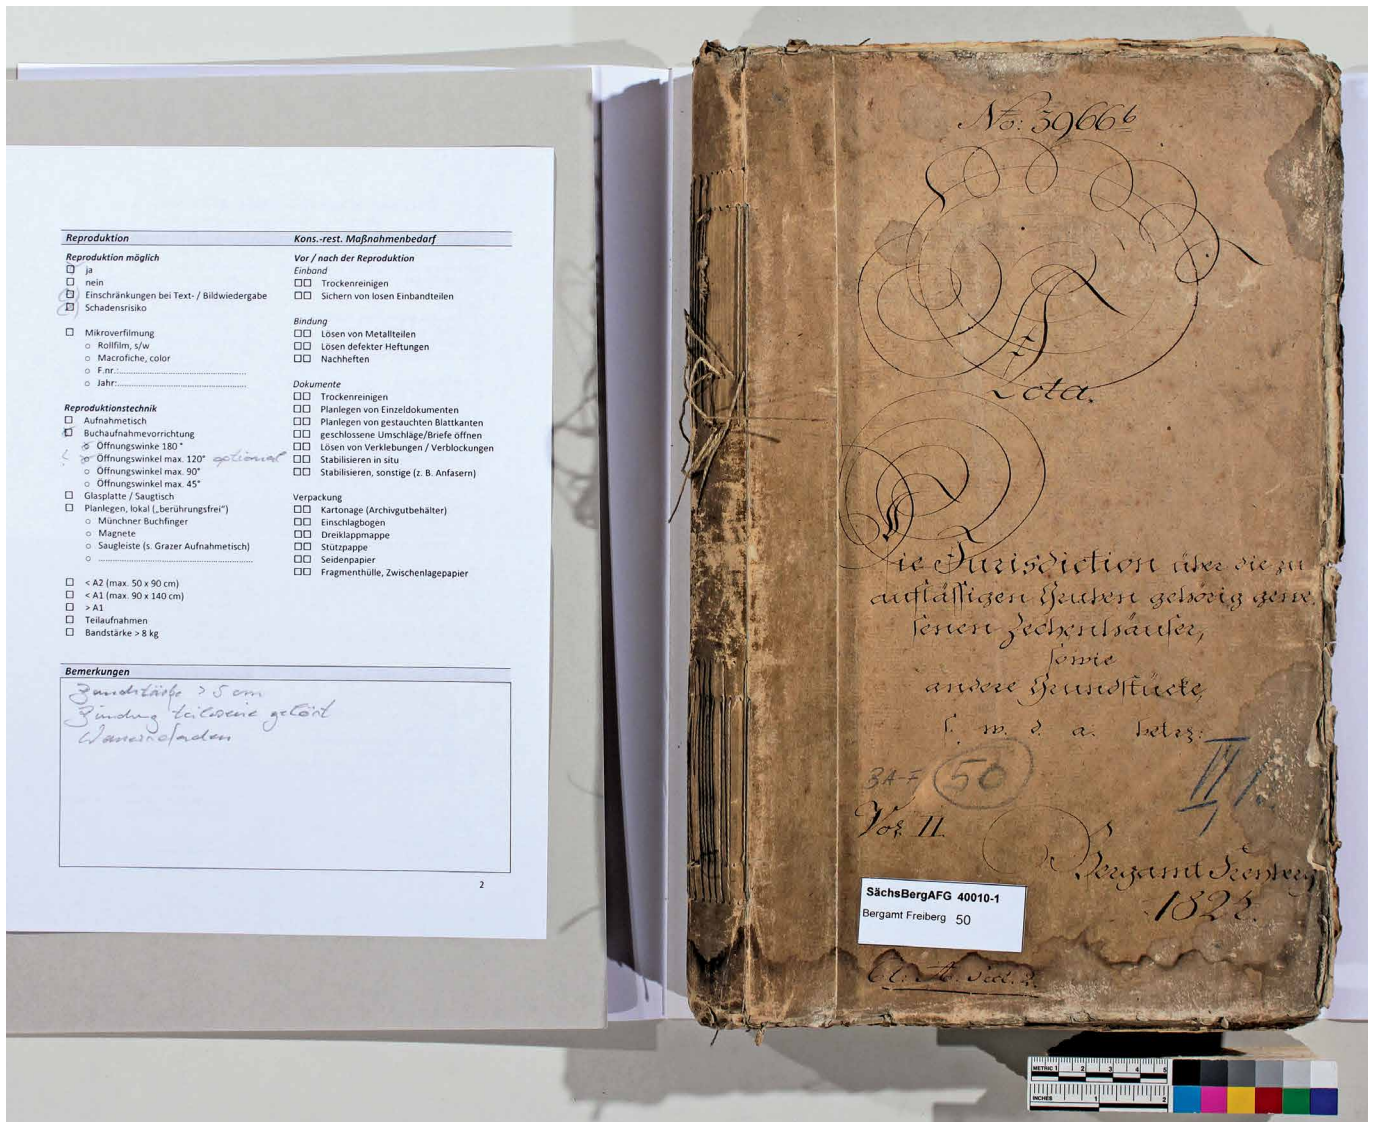 Reproduktion
Reproduktion möglich
ja
nein
Einschränkungen bei Text- / Bildwiedergabe
Schadensrisiko
Mikroverfilmung
Rollfilm, s/w
Macrofiche, color
F.nr.:
Jahr:
Reproduktionstechnik
Aufnahmetisch
Buchaufnahmevorrichtung
Öffnungswinke 180 °
Öffnungswinkel max. 120° optional
Öffnungswinkel max. 90°
Öffnungswinkel max. 45°
Glasplatte / Saugtisch
Planlegen, lokal („berührungsfrei")
Münchner Buchfinger
Magnete
Saugleiste (s. Grazer Aufnahmetisch)
< A2 (max. 50 x 90 cm)
< A1 (max. 90 x 140 cm)
> A1
Teilaufnahmen
Bandstärke > 8 kg
Kons.-rest. Maßnahmenbedarf
Vor / nach der Reproduktion
Einband
Trockenreinigen
Sichern von losen Einbandteilen
Bindung
Lösen von Metallteilen
Lösen defekter Heftungen
Nachheften
Dokumente
Trockenreinigen
Planlegen von Einzeldokumenten
Planlegen von gestauchten Blattkanten
geschlossene Umschläge/Briefe öffnen
Lösen von Verklebungen / Verblockungen
Stabilisieren in situ
Stabilisieren, sonstige (z. B. Anfasern)
Verpackung
Kartonage (Archivgutbehälter)
Einschlagbogen
Dreiklappmappe
Stützpappe
Seidenpapier
Fragmenthülle, Zwischenlagepapier
Bemerkungen
Bandstärke > 5 cm
Bindung teilweise gelöst
Wasserschaden
2
No: 3966 b
Acta.
Die Jurisdiction über die zu
auflässigen Gruben gehörig gewe,
senen Zechenhäuser,
sowie
andere Grundstücke,
s. w. d. a. betr:
BA-F 50
Vol: II.
Bergamt Freyberg
SächsBergAFG 40010-1
Bergamt Freiberg 50
METRIC 1 2 3 4 5
INCHES 1 2